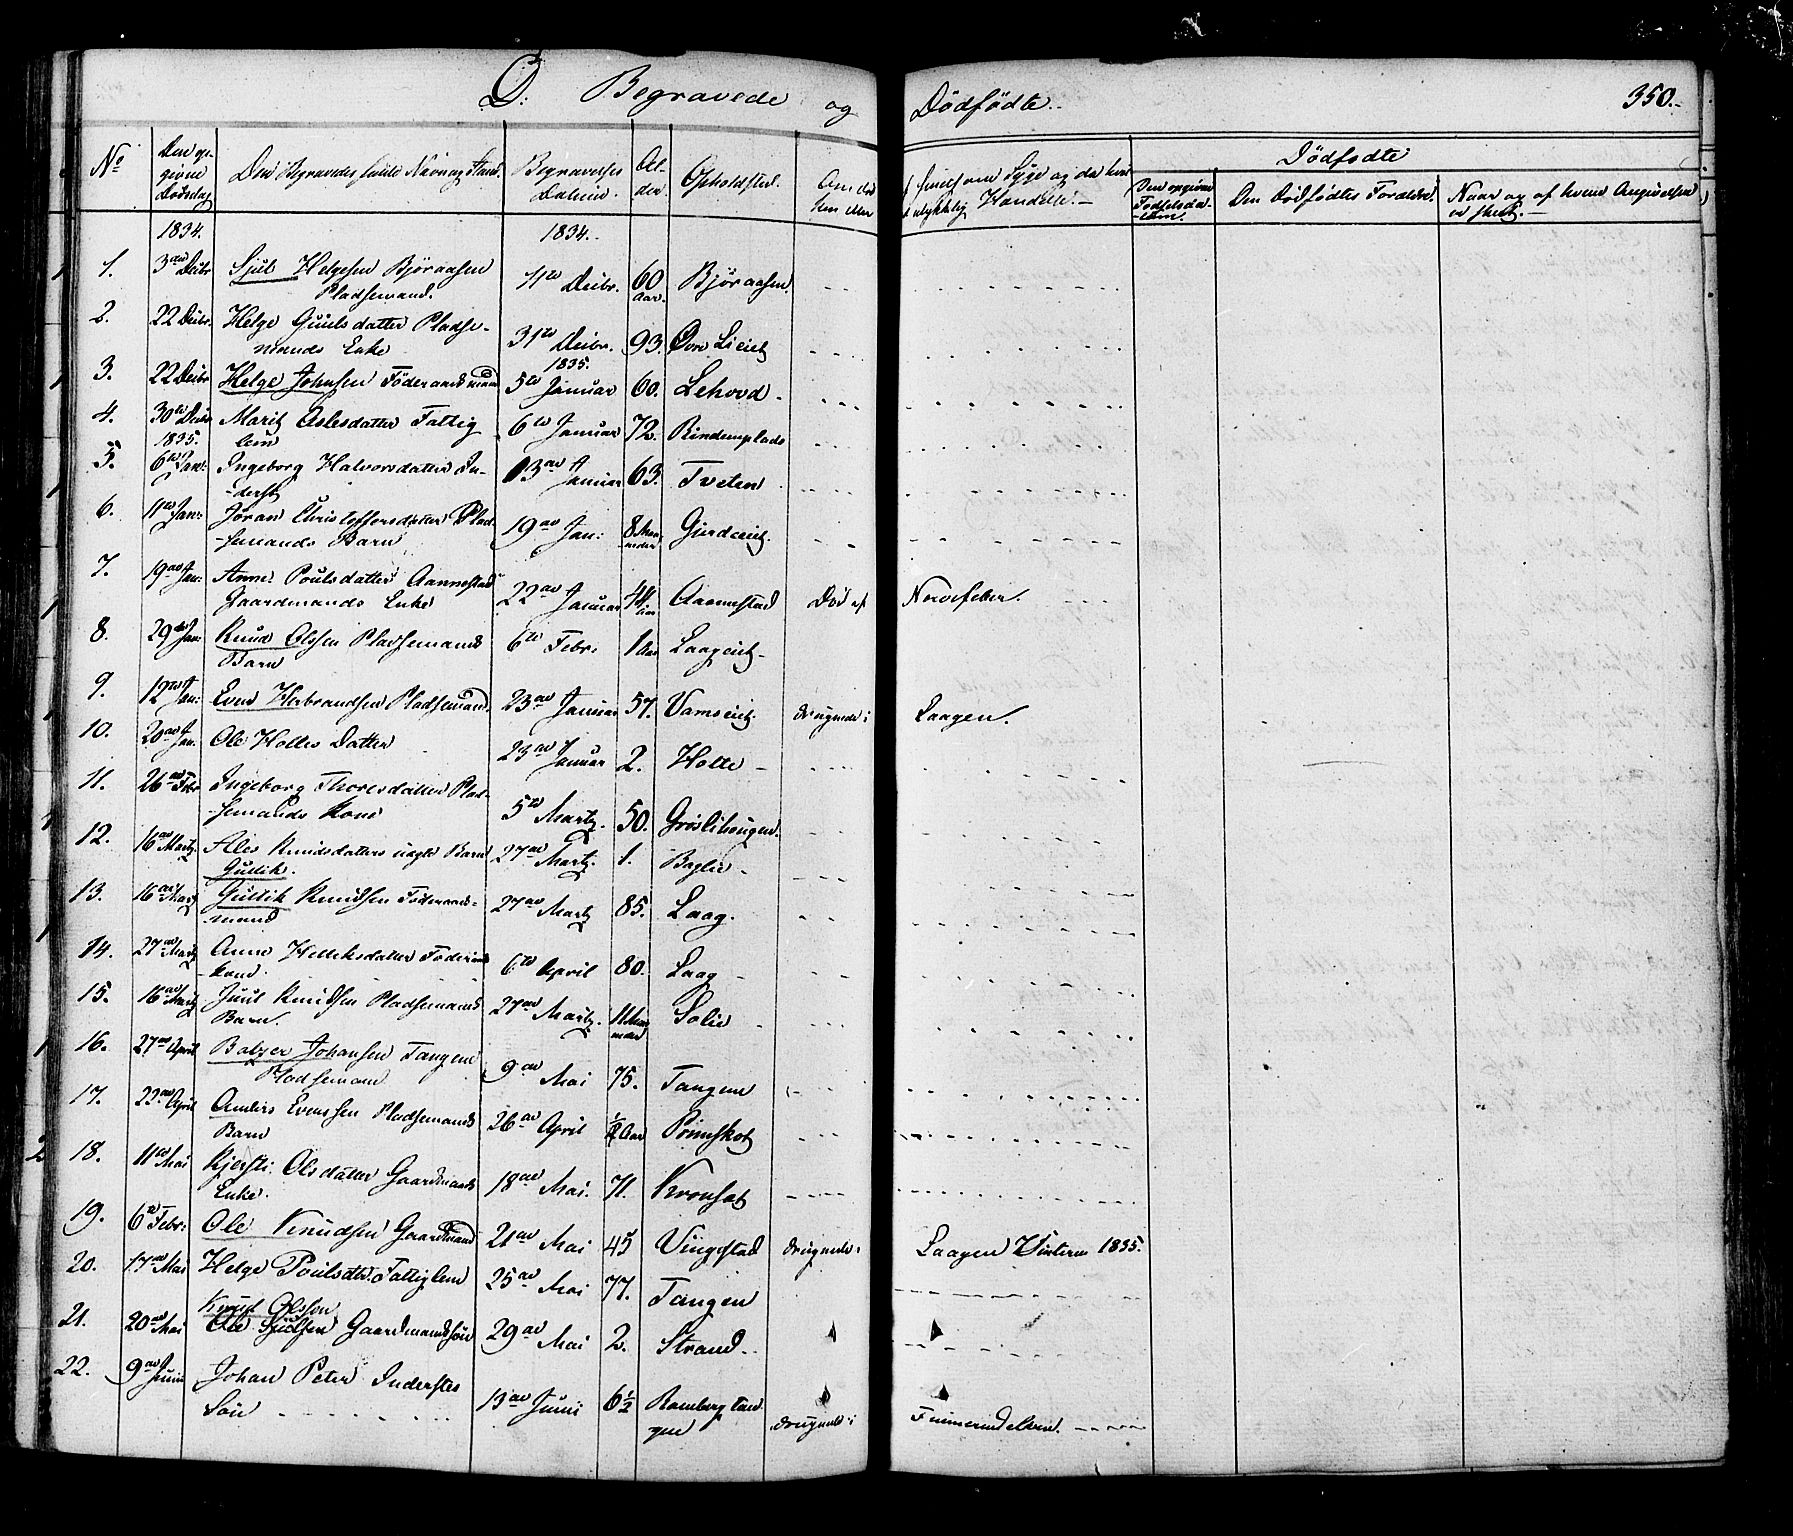 D. Begravede og Dödfödte. 350.
No Den opgivne Dödsdag Den Begravedes fulde Navn og Stand. Begravelses Datum. Alder. Opholdsted. Dödfödte
Den opgivne Födselsdatum. Den Dödfödtes Forældre. Naar og af hvem Angivelsen er skeet.
1834. 1834.
1. 3die Decbr Sjul Helgesen Björaasen 11te Decbr. 60 Aar. Björaasen
Pladsemand.
2. 22 Decbr. Helge Guulsdatter Pladse-
mands Enke 31te Decbr. 93. Øvre Lieiet
1835.
3. 22 Decbr Helge Johnsen Föderaadsmand 5te Januar 60. Lehovd
4. 30te Decbr Marit Aslesdatter Fattig 6te Januar 72. Rindenplads
lem
1835.
5. 6te Jan: Ingeborg Halvorsdatter In- 13de Januar 63. Tveten
-derst
6. 11te Jan: Jöran Christoffersdatter Plad- 19de Jan: 8 Maaneder
-semands Barn
7. 19de Jan: Anne Poulsdatter Aannestad
Gaardmands Enke 22de Januar 74 Aar Aannestad Död af Nervefeber.
8. 29de Jan: Knud Olssen Pladsemands 6te Febr: 1 Aar Laageiet
Barn
9. 12te Jan: Even Herbrandsen Pladsemand 23de Januar 57. Vamseiet. druknede i Laagen.
10. 20de Jan. Ole Holtes Datter 23de Januar 2. Holte
11. 26de Febr Ingeborg Thoresdatter Plad-
-semands Kone 5te Martz. 50. Gröslihougen.
12. 16de Martz Ales Knudsdatters uægte Barn 27de Martz. 1. Baglie
Gullik.
13. 16de Martz Gullik Knudsen Föderaads- 27de Martz 85. Laag.
mand
14. 27de Martz Anne Helleksdatter Föderaads 6te April 80. Laag
-kone.
15. 16de Martz Juul Knudsen Pladsemands 27de Martz. 11 Maaneder Solie
Barn.
16. 27de April Balzer Johansen Tangen
Pladsemann 9de Mai 75. Tangen
17. 22de April Anders Evenssen Pladsemands 26de April 1/2 Aar Prinskot
Barn
18. 11te Mai Kjersti Olsdatter Gaardmands 18de Mai. 71. Kronset
Enke.
19. 6te Febr: Ole Knudsen Gaardmand 21de Mai 45 Vingestad druknede i Laagen Vinteren 1835.
20. 17de Mai Helge Poulsdtr: Fattiglem 25de Mai 77. Tangen
Knud Olsson
21. 20de Mai Ole Sjulsen Gaardmandssön 29de Mai 2. Strand
22. 9de Juni Johan Peter Inderstes
Sön 13de Juni 6 1/2 Ramberg tan
gen druknede i Fimmerudelven.